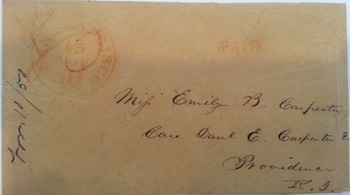 PAID
Miss Emily B. Carpenter
Care Danl E. Carpenter E
Providence
R. I.